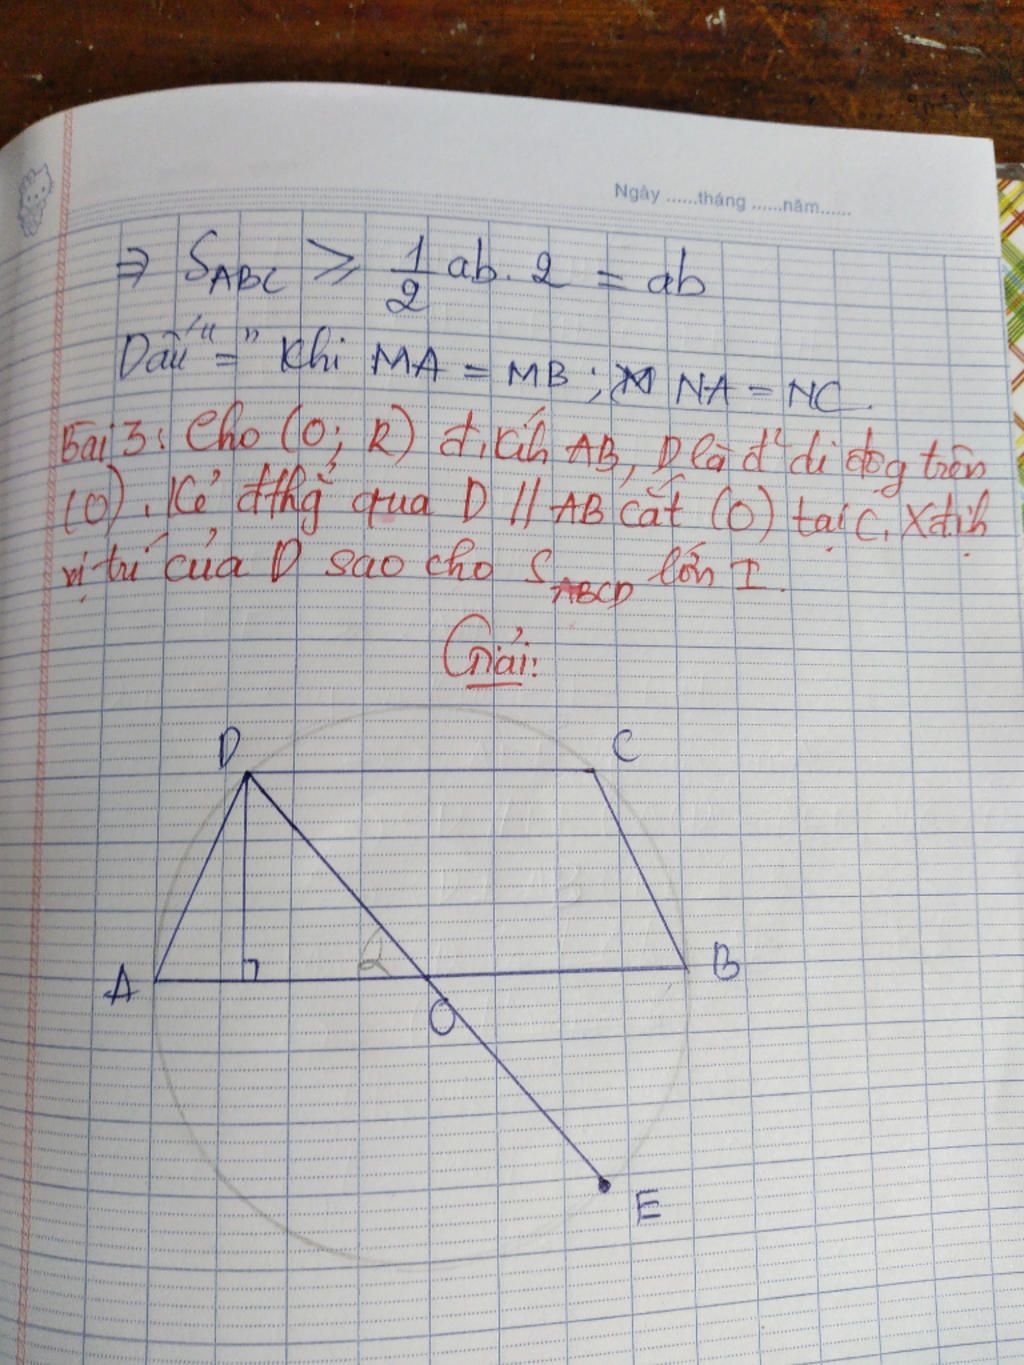 Ngày ......tháng ......năm......
⇒ S_ABC ≥ 1/2 ab. 2 = ab
Dấu "=" khi MA = MB ; NA = NC.
Bài 3: Cho (O; R) đ.kíh AB, D là đ² di độg trên
(O). Kẻ đthg̉ qua D // AB cắt (O) tại C. Xđịh
vị trí của D sao cho S_ABCD lớn I.
Giải:
D C
2
A B
O
E